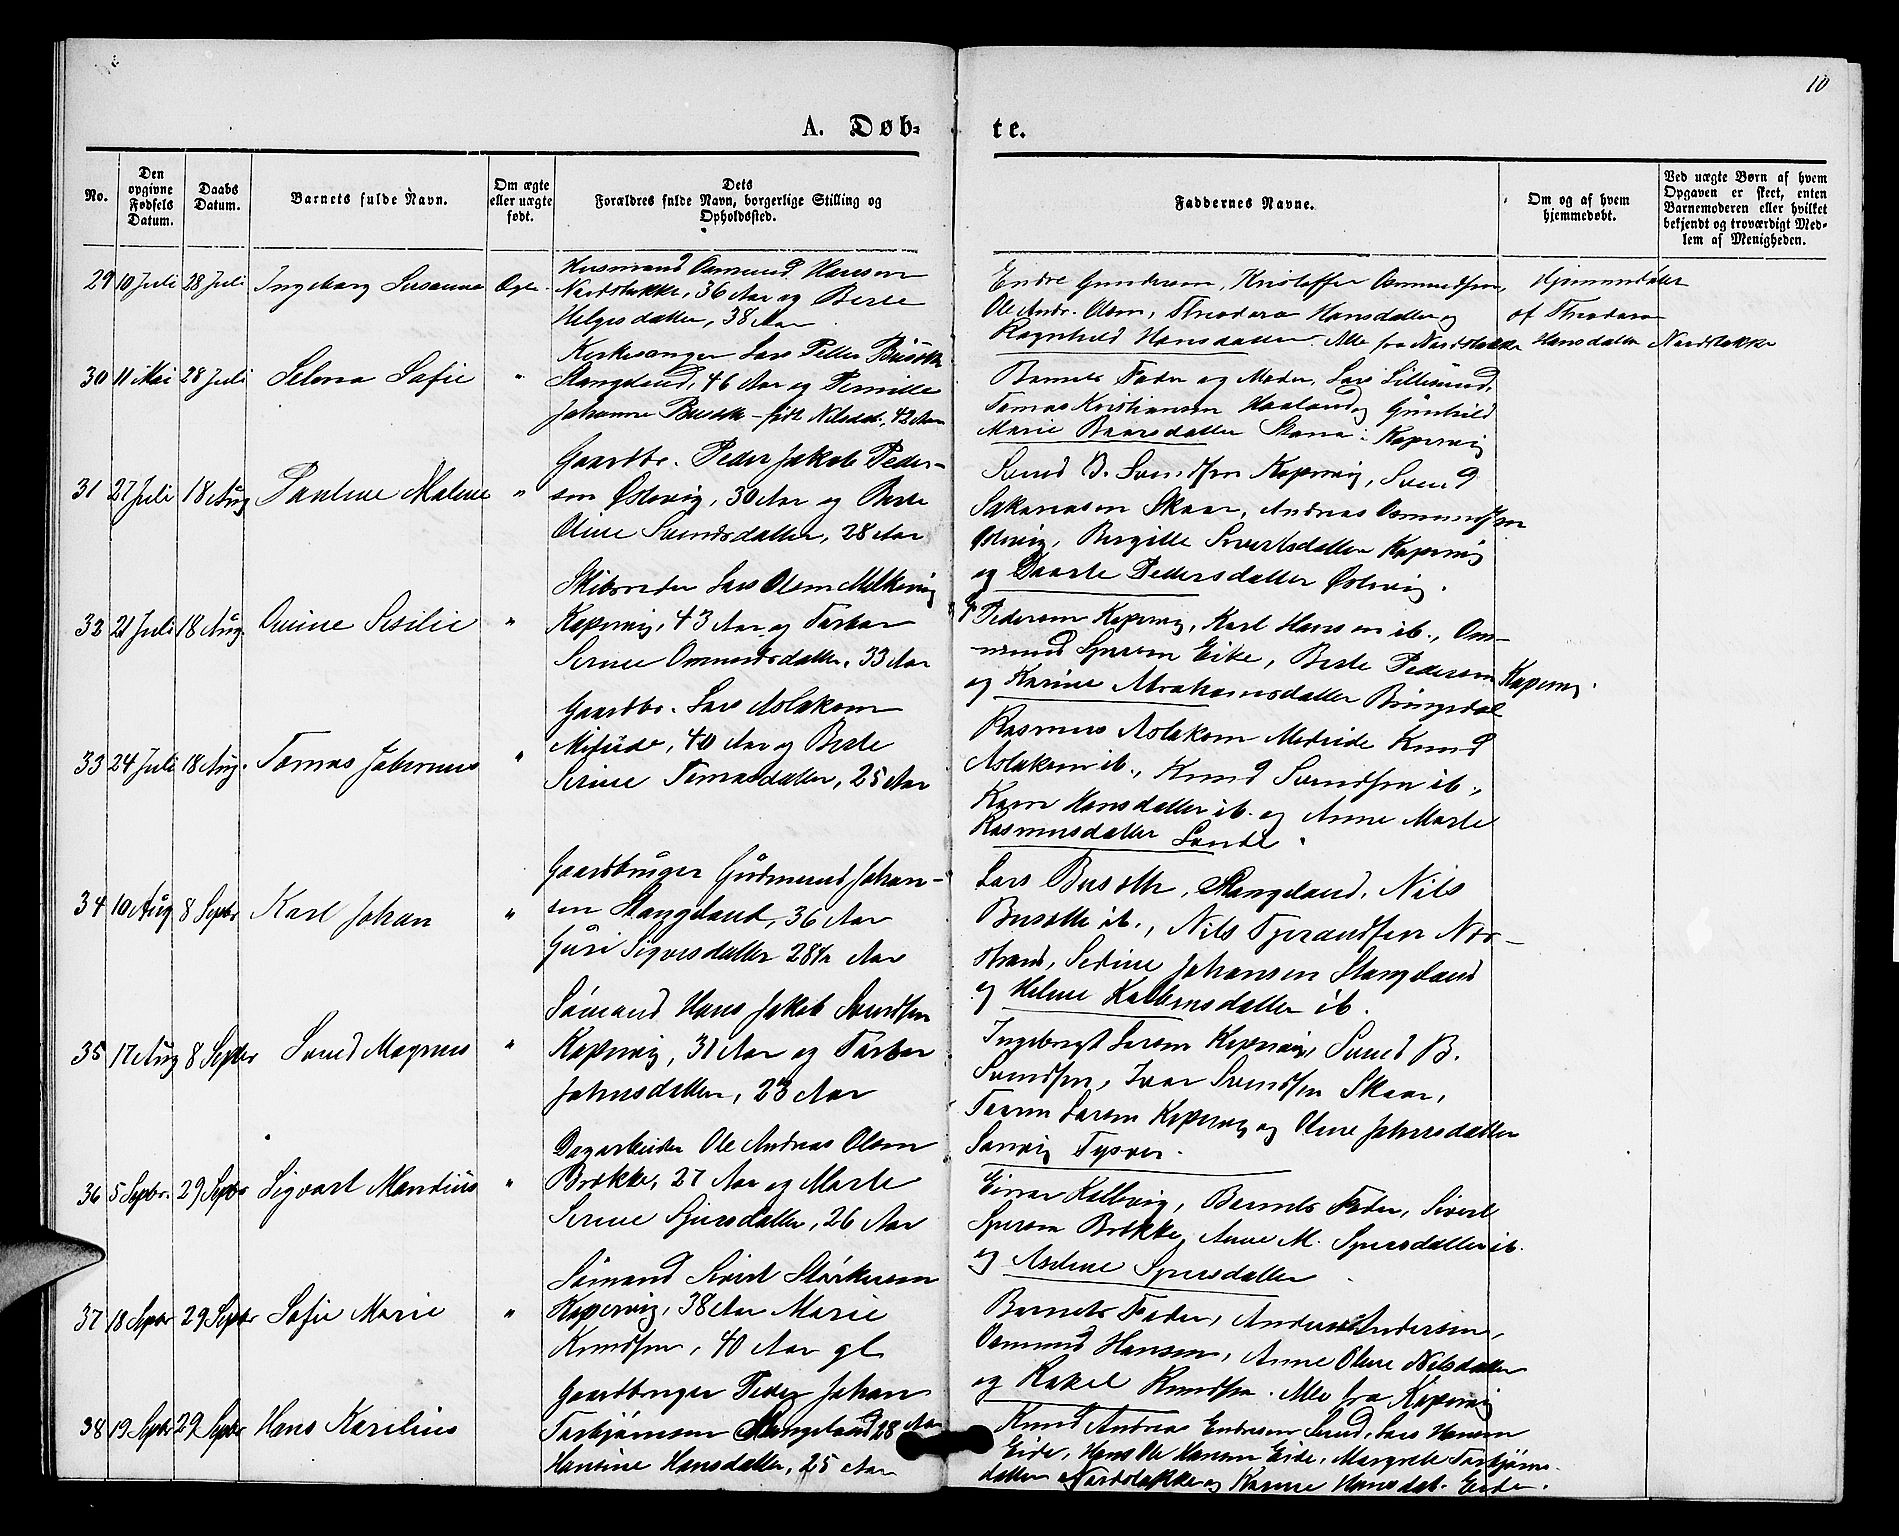 10
A. Døb-
te.
No.
Den opgivne Fødsels Datum.
Daabs Datum.
Barnets fulde Navn.
Om ægte eller uægte født.
Dets Forældres fulde Navn, borgerlige Stilling og Opholdssted.
Faddernes Navne.
Om og af hvem hjemmedøbt.
Ved uægte Børn af hvem Opgaven er skeet, enten Barnemoderen eller hvilket bekjendt og troværdigt Medlem af Menigheden.
29 10 Juli 28 Juli Ingeborg Susanna Ægte
Husmand Osmund Hansen
Nordstokke, 36 Aar og Berte
Helgesdatter, 38 Aar
Endre Gundersen, Kristoffer Osmundsen,
Ole Andr. Olsen, Theodora Hansdatter og
Ragnhild Hansdatter. Alle fra Nordstokke
Hjemmedøbt
af Theodora
Hansdatter Nordstokke
30 11 Mai 28 Juli Selma Sofie "
Kirkesanger Lars Petter Busøth
Stangeland, 46 Aar og Pernille
Johanne Busøth - født Nilsdat., 42 Aar
Barnets Fader og Moder, Lars Lillesund,
Tomas Kristiansen Haaland og Gunhild
Marie Baarsdatter Stana i Kopervig
31 27 Juli 18 Aug Pauline Malene "
Gaardbr. Peder Jakob Peder-
sen Østevig, 30 Aar og Berte
Oline Svendsdatter, 28 Aar
Svend B. Svendsen Kopervig, Svend
Sakariasen Skaar, Andreas Osmundsen
Østevig, Birgitte Sivertsdatter Kopervig
og Daarte Pettersdatter Østevig.
32 21 Juli 18 Aug. Ovine Sesilie "
Skibsreder Lars Olsen Melkevig
Kopervig, 43 Aar og Torbor
Serine Osmundsdatter, 33 Aar
Pedersen Kopervig, Karl Hansen ib., Os-
mund Sjursen Eike, Berte Pedersen Kopervig
og Karine Abrahamsdatter Bringedal
33 24 Juli 18 Aug. Tomas Johannes "
Gaardbr. Lars Aslaksen
Midtude, 40 Aar og Berte
Serine Tomasdatter, 25 Aar
Rasmus Aslaksen Medeide Knud
Aslaksen ib., Knud Svendsen ib.,
Karn Hansdatter ib. og Anne Marte
Rasmusdatter Sande.
34 10 Aug 8 Septbr Karl Johan "
Gaardbruger Gudmund Johan-
sen Stangeland, 36 Aar
Guri Sigvesdatter 28 ½ Aar
Lars Busøth, Stangeland, Nils
Busøth ib., Nils Tjerandsen Nor-
strand, Sedine Johansen Stangeland
og Helene Kolbensdatter ib.
35 17 Aug 8 Septbr Svend Magnus "
Sømand Hans Jakob Svendsen
Kopervig, 31 Aar og Torbor
Johnsdatter, 23 Aar
Ingebregt Larsen Kopervig, Svend B.
Svendsen, Ivar Svendsen Skaar,
Taaren Larsen Kopervig og Oline Johnsdatter
Sørvig Tysvær.
36 5 Septbr. 29 Septbr Sigvart Mandius "
Dagarbeider Ole Andreas Olsen
Brekke, 27 Aar og Marte
Serine Sjursdatter, 26 Aar
Einar Kolbevig, Barnets Fader, Sivert
Sjursen Brekke, Anne M. Sjursdatter ib.
og Aselene Sjursdatter
37 18 Septbr 29 Septbr Sofie Marie "
Sømand Sivert Størkersen
Kopervig, 38 Aar Marie
Knudsen, 40 Aar gl
Barnets Fader, Anders Andersen,
Osmund Hansen, Anne Oline Nilsdatter
og Rakel Knudsen. Alle fra Kopervig
38 19 Septbr 29 Septbr Hans Karelius
Gaardbruger Peder Johan
Torbjørnsen Stangeland 28 Aar
Hansine Hansdatter, 25 Aar
Knud Andreas Endresen Sund, Lars Hansen
Eide, Hans Ole Hansen Eide, Margrete Torbjørns-
datter Nordstokke og Karine Hansdat. Eide.